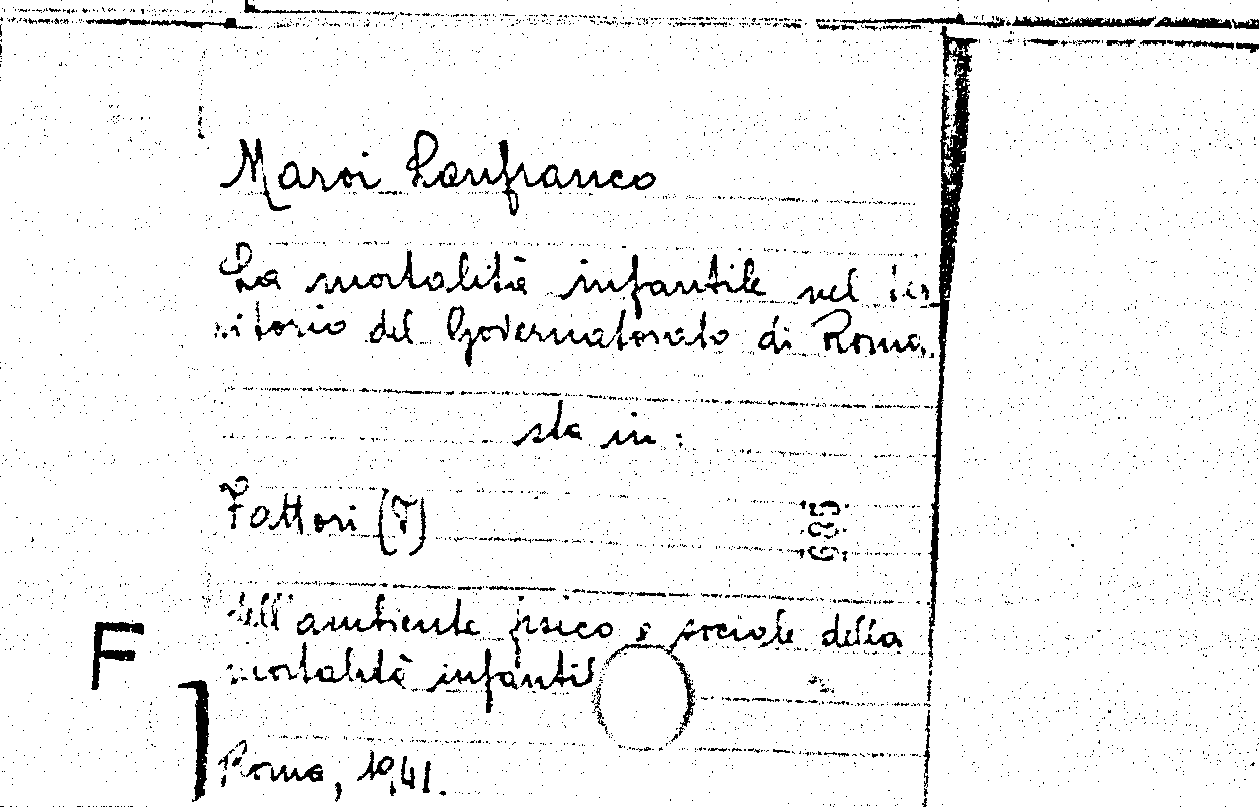 Maroi Lanfranco
La mortalità infantile nel ter-
ritorio del Governatorato di Roma.
sta in:
Fattori (I)
685
dell'ambiente fisico e sociale della
mortalità infantil
F
Roma, 1941.